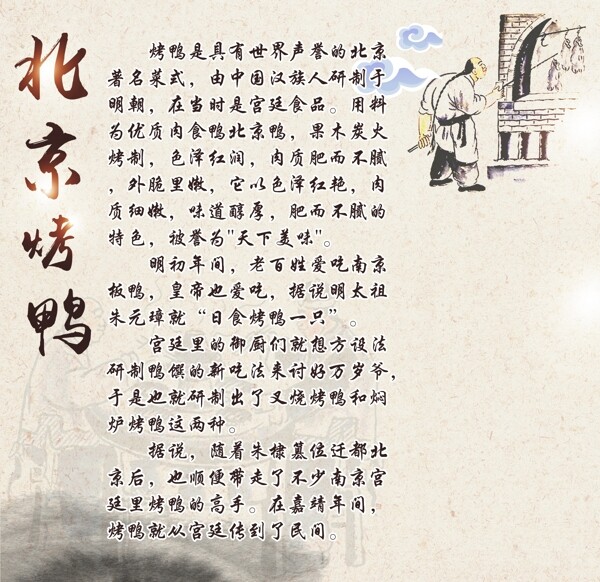 北京烤鸭
烤鸭是具有世界声誉的北京
著名菜式，由中国汉族人研制于
明朝，在当时是宫廷食品。用料
为优质肉食鸭北京鸭，果木炭火
烤制，色泽红润，肉质肥而不腻
，外脆里嫩，它以色泽红艳，肉
质细嫩，味道醇厚，肥而不腻的
特色，被誉为"天下美味"。
明初年间，老百姓爱吃南京
板鸭，皇帝也爱吃，据说明太祖
朱元璋就“日食烤鸭一只”。
宫廷里的御厨们就想方设法
研制鸭馔的新吃法来讨好万岁爷，
于是也就研制出了叉烧烤鸭和焖
炉烤鸭这两种。
据说，随着朱棣篡位迁都北
京后，也顺便带走了不少南京宫
廷里烤鸭的高手。在嘉靖年间，
烤鸭就从宫廷传到了民间。